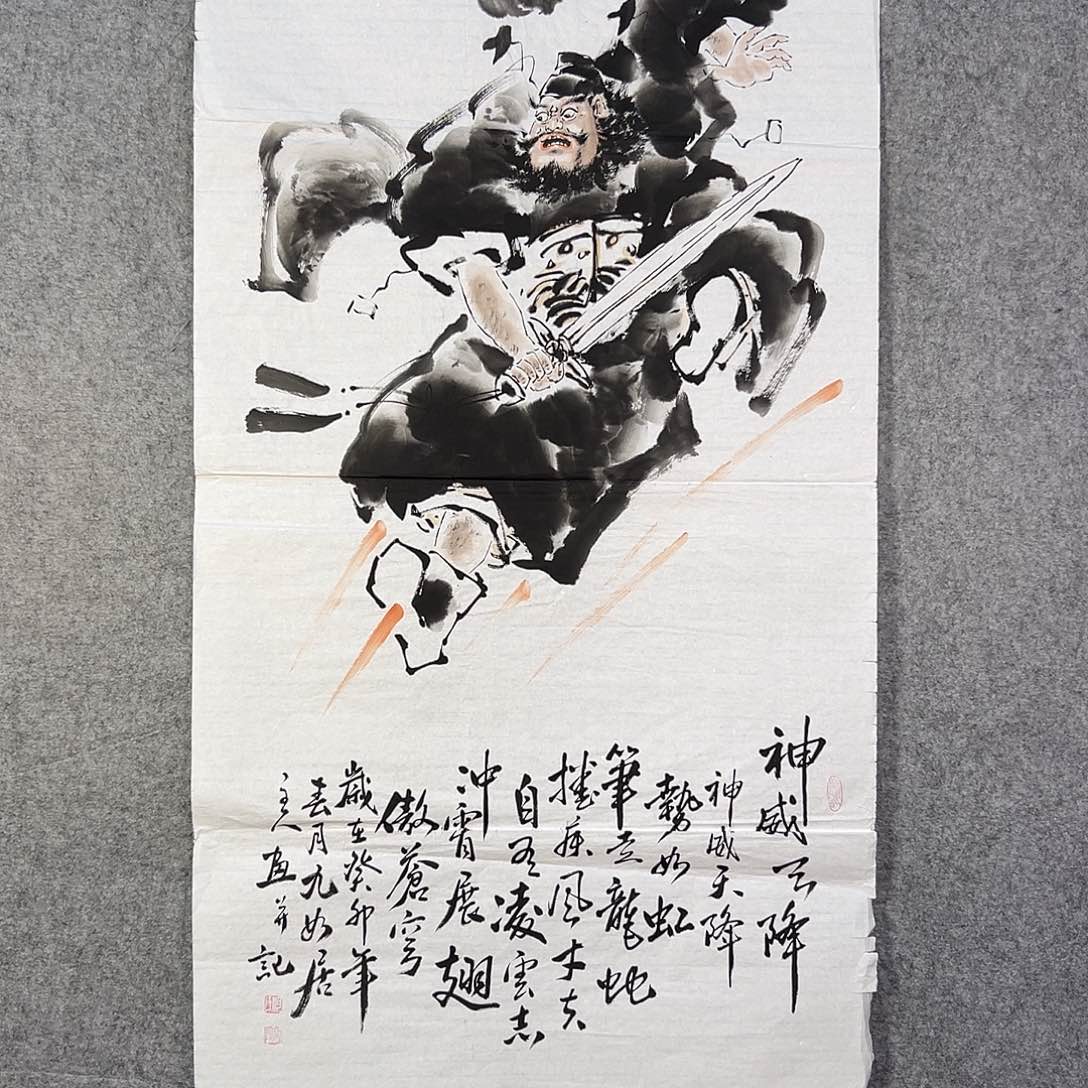 神威天降
神威天降
勢如虹
筆走龍蛇
捲疾風丈夫
自有凌雲志
沖霄展翅
傲蒼穹
歲在癸卯年
春月九如居
主人画并記